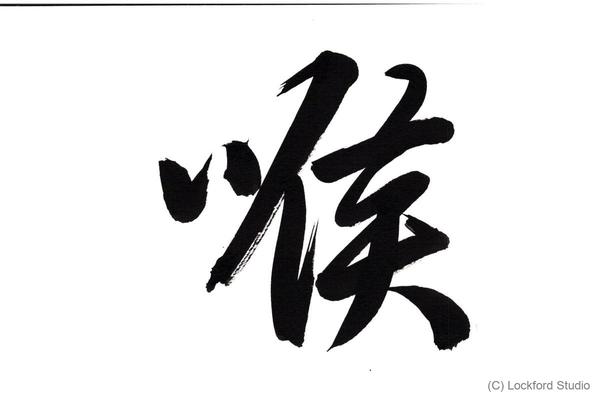 喉
(C) Lockford Studio